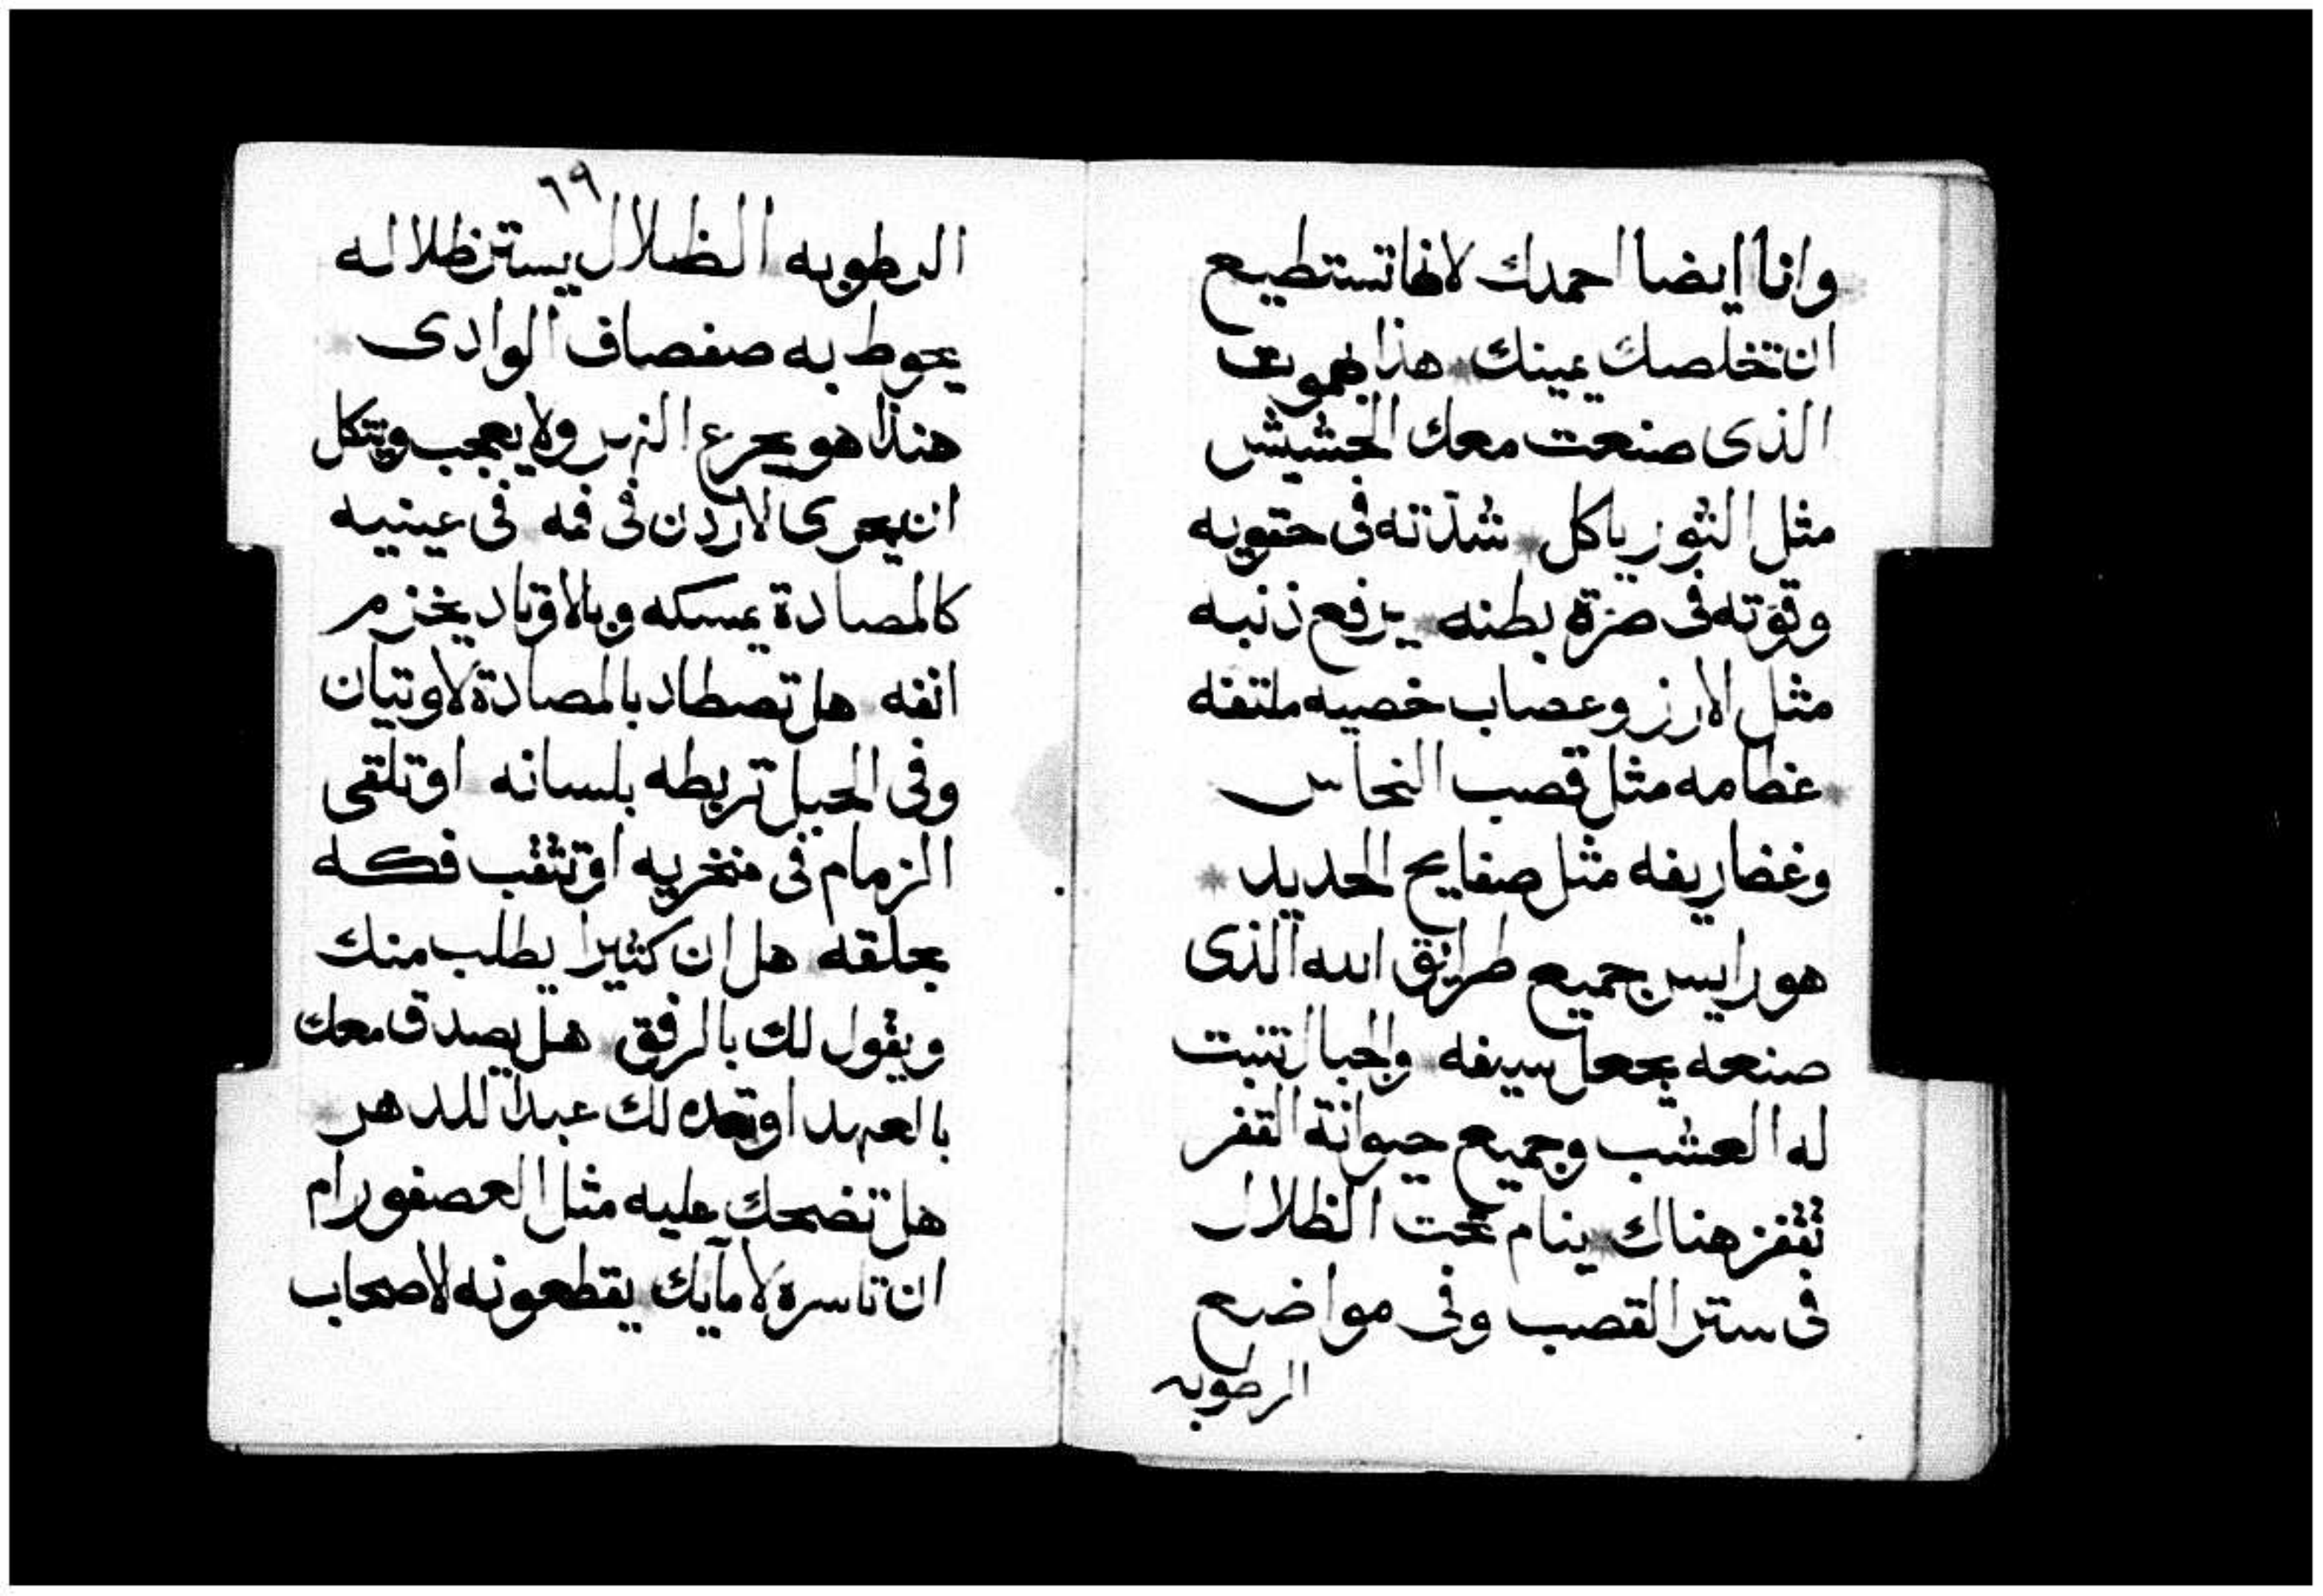 وانا ايضا احمدك لانها تستطيع
ان تخلصك يمينك هذا بهموت
الذى صنعت معك الحشيش
مثل الثور ياكل شدّته فى حقويه
وقوّته فى صرّة بطنه يرفع ذنبه
مثل الارز وعصاب خصيه ملتفه
عظامه مثل قصب النحاس
وغضاريفه مثل صفايح الحديد
هو رايس جميع طرايق الله الذى
صنعه يجعل سيفه والجبال تنبت
له العشب وجميع حيوانة القفر
تقفز هناك ينام تحت الظلال
فى ستر القصب وفى مواضع
الرطوبه
٦٩
الرطوبه الظلال يستر ظلاله
يحوط به صفصاف الوادى
هذا هو يجرع النهر ولا يعجب ويتكل
ان يجرى الاردن فى فمه فى عينيه
كالمصادة يمسكه وبالاوتاد يخزم
انفه هل تصطاد بالمصادة لاويتان
وفى الحبل تربطه بلسانه او تلقى
الزمام فى منخريه او تثقب فكه
بحلقه هل ان كثيرا يطلب منك
ويقول لك بالرفق هل يصدق معك
بالعهد او تعده لك عبدا للدهر
هل تضحك عليه مثل العصفور ام
ان تاسره لامآيك يقطعونه لاصحاب